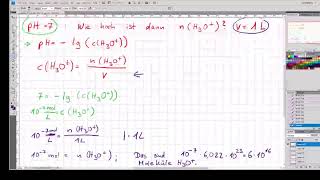 pH=7 : Wie hoch ist dann n(H₃O⁺)? V=1L
→ pH = - lg (c(H₃O⁺))
c(H₃O⁺) = n(H₃O⁺) / V
7 = - lg (c(H₃O⁺))
10⁻⁷ mol/L = c(H₃O⁺)
10⁻⁷ mol/L = n(H₃O⁺) / 1L | · 1L
10⁻⁷ mol = n(H₃O⁺) ; Das sind 10⁻⁷ · 6,022 · 10²³ = 6 · 10¹⁶
Moleküle H₃O⁺.